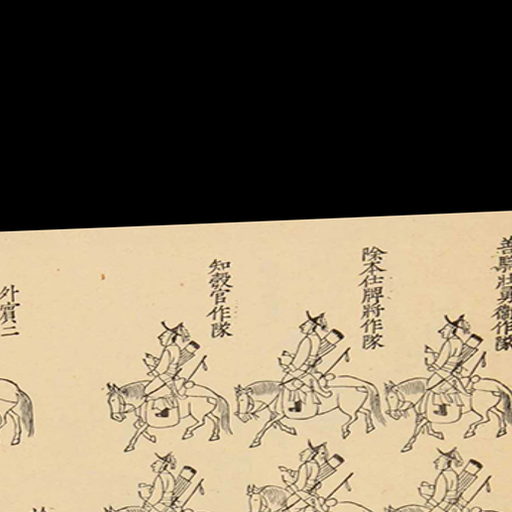 善騎壯勇衛作隊
除本仕牌將作隊
知彀官作隊
外賓二